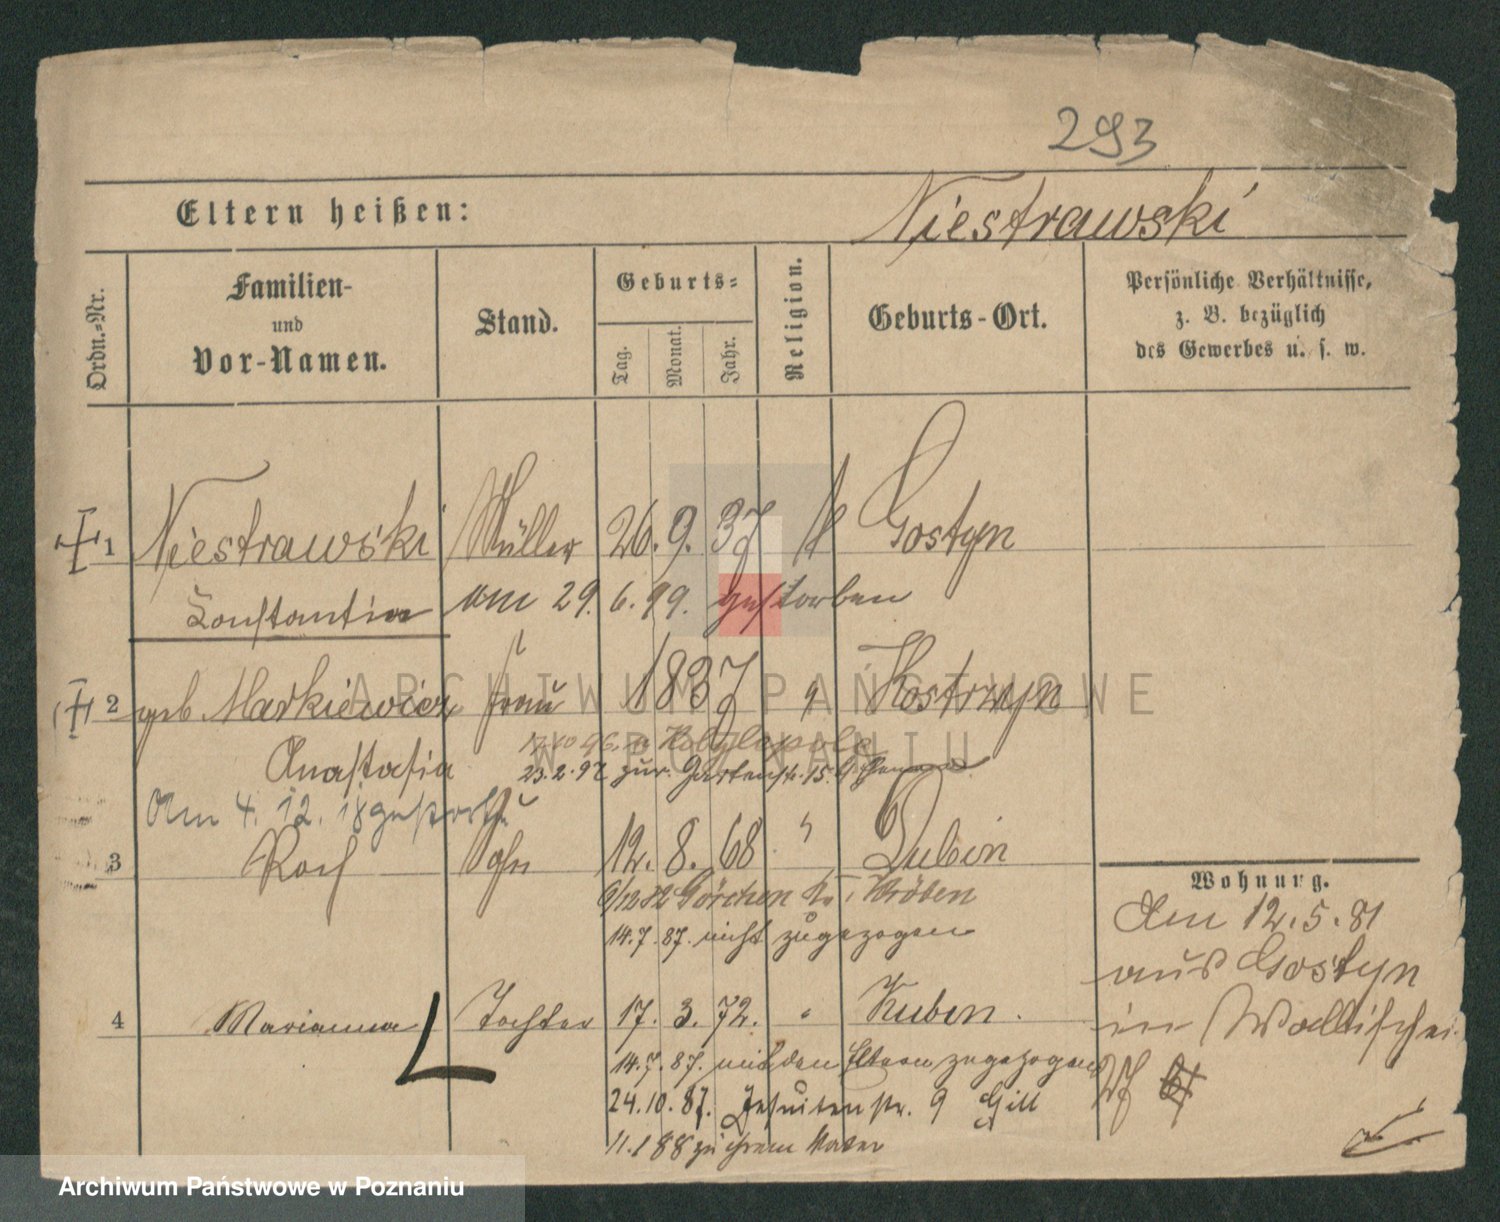 293
Eltern heißen:
Niestrawski
Ordn.-Nr.
Familien-
und
Vor-Namen.
Stand.
Geburts-
Tag.
Monat.
Jahr.
Religion.
Geburts-Ort.
Persönliche Verhältnisse,
z. B. bezüglich
des Gewerbes u. s. w.
1 Niestrawski Müller 26. 9. 37 k Gostyn
Konstantin am 29. 6. 99. gestorben
2 geb Markiewicz Frau 1837 " Kostrzyn
Anastasia 23.2.97 zur. Gartenstr. 15.
Am 4. 12. 18 gestorben
3 Roch Sohn 12. 8. 68 " Dubin
9/12 82 Görchen Kr. Kröben
14.7.87. nicht zugezogen
4 Marianna Tochter 17. 3. 72. "
14.7.87. mit den Eltern zugezogen
24.10.87. Jesuitenstr. 9 Gill
11.1 88 zu ihrem Vater
Wohnung.
Am 12.5.81
aus Gostyn
in Wallischei
ARCHIWUM PAŃSTWOWE
W POZNANIU
Archiwum Państwowe w Poznaniu